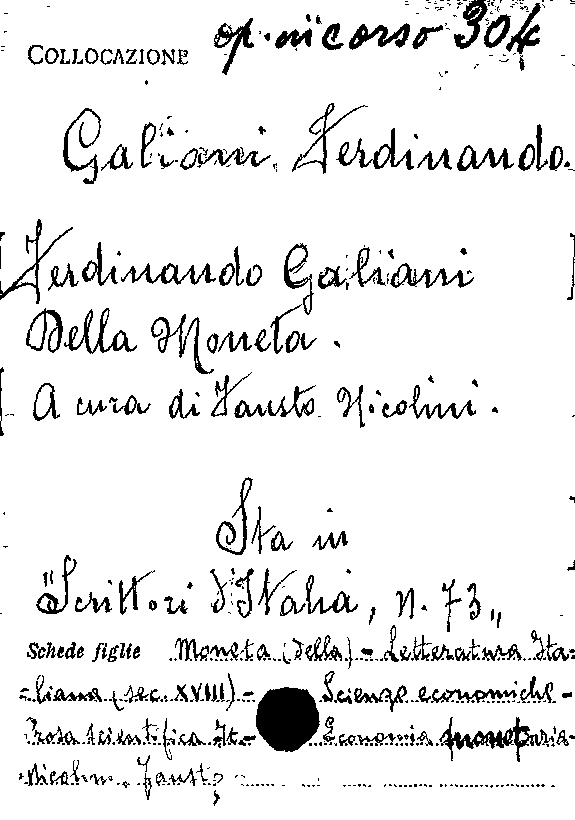 COLLOCAZIONE op. in corso 304
Galiani, Ferdinando.
Ferdinando Galiani
Della Moneta.
A cura di Fausto Nicolini.
Sta in
"Scrittori d'Italia, n. 73„
Schede figlie Moneta (Della) - Letteratura Ita-
liana (sec. XVIII) - Scienze economiche -
Prosa scientifica It. - Economia monetaria -
Nicolini, Fausto